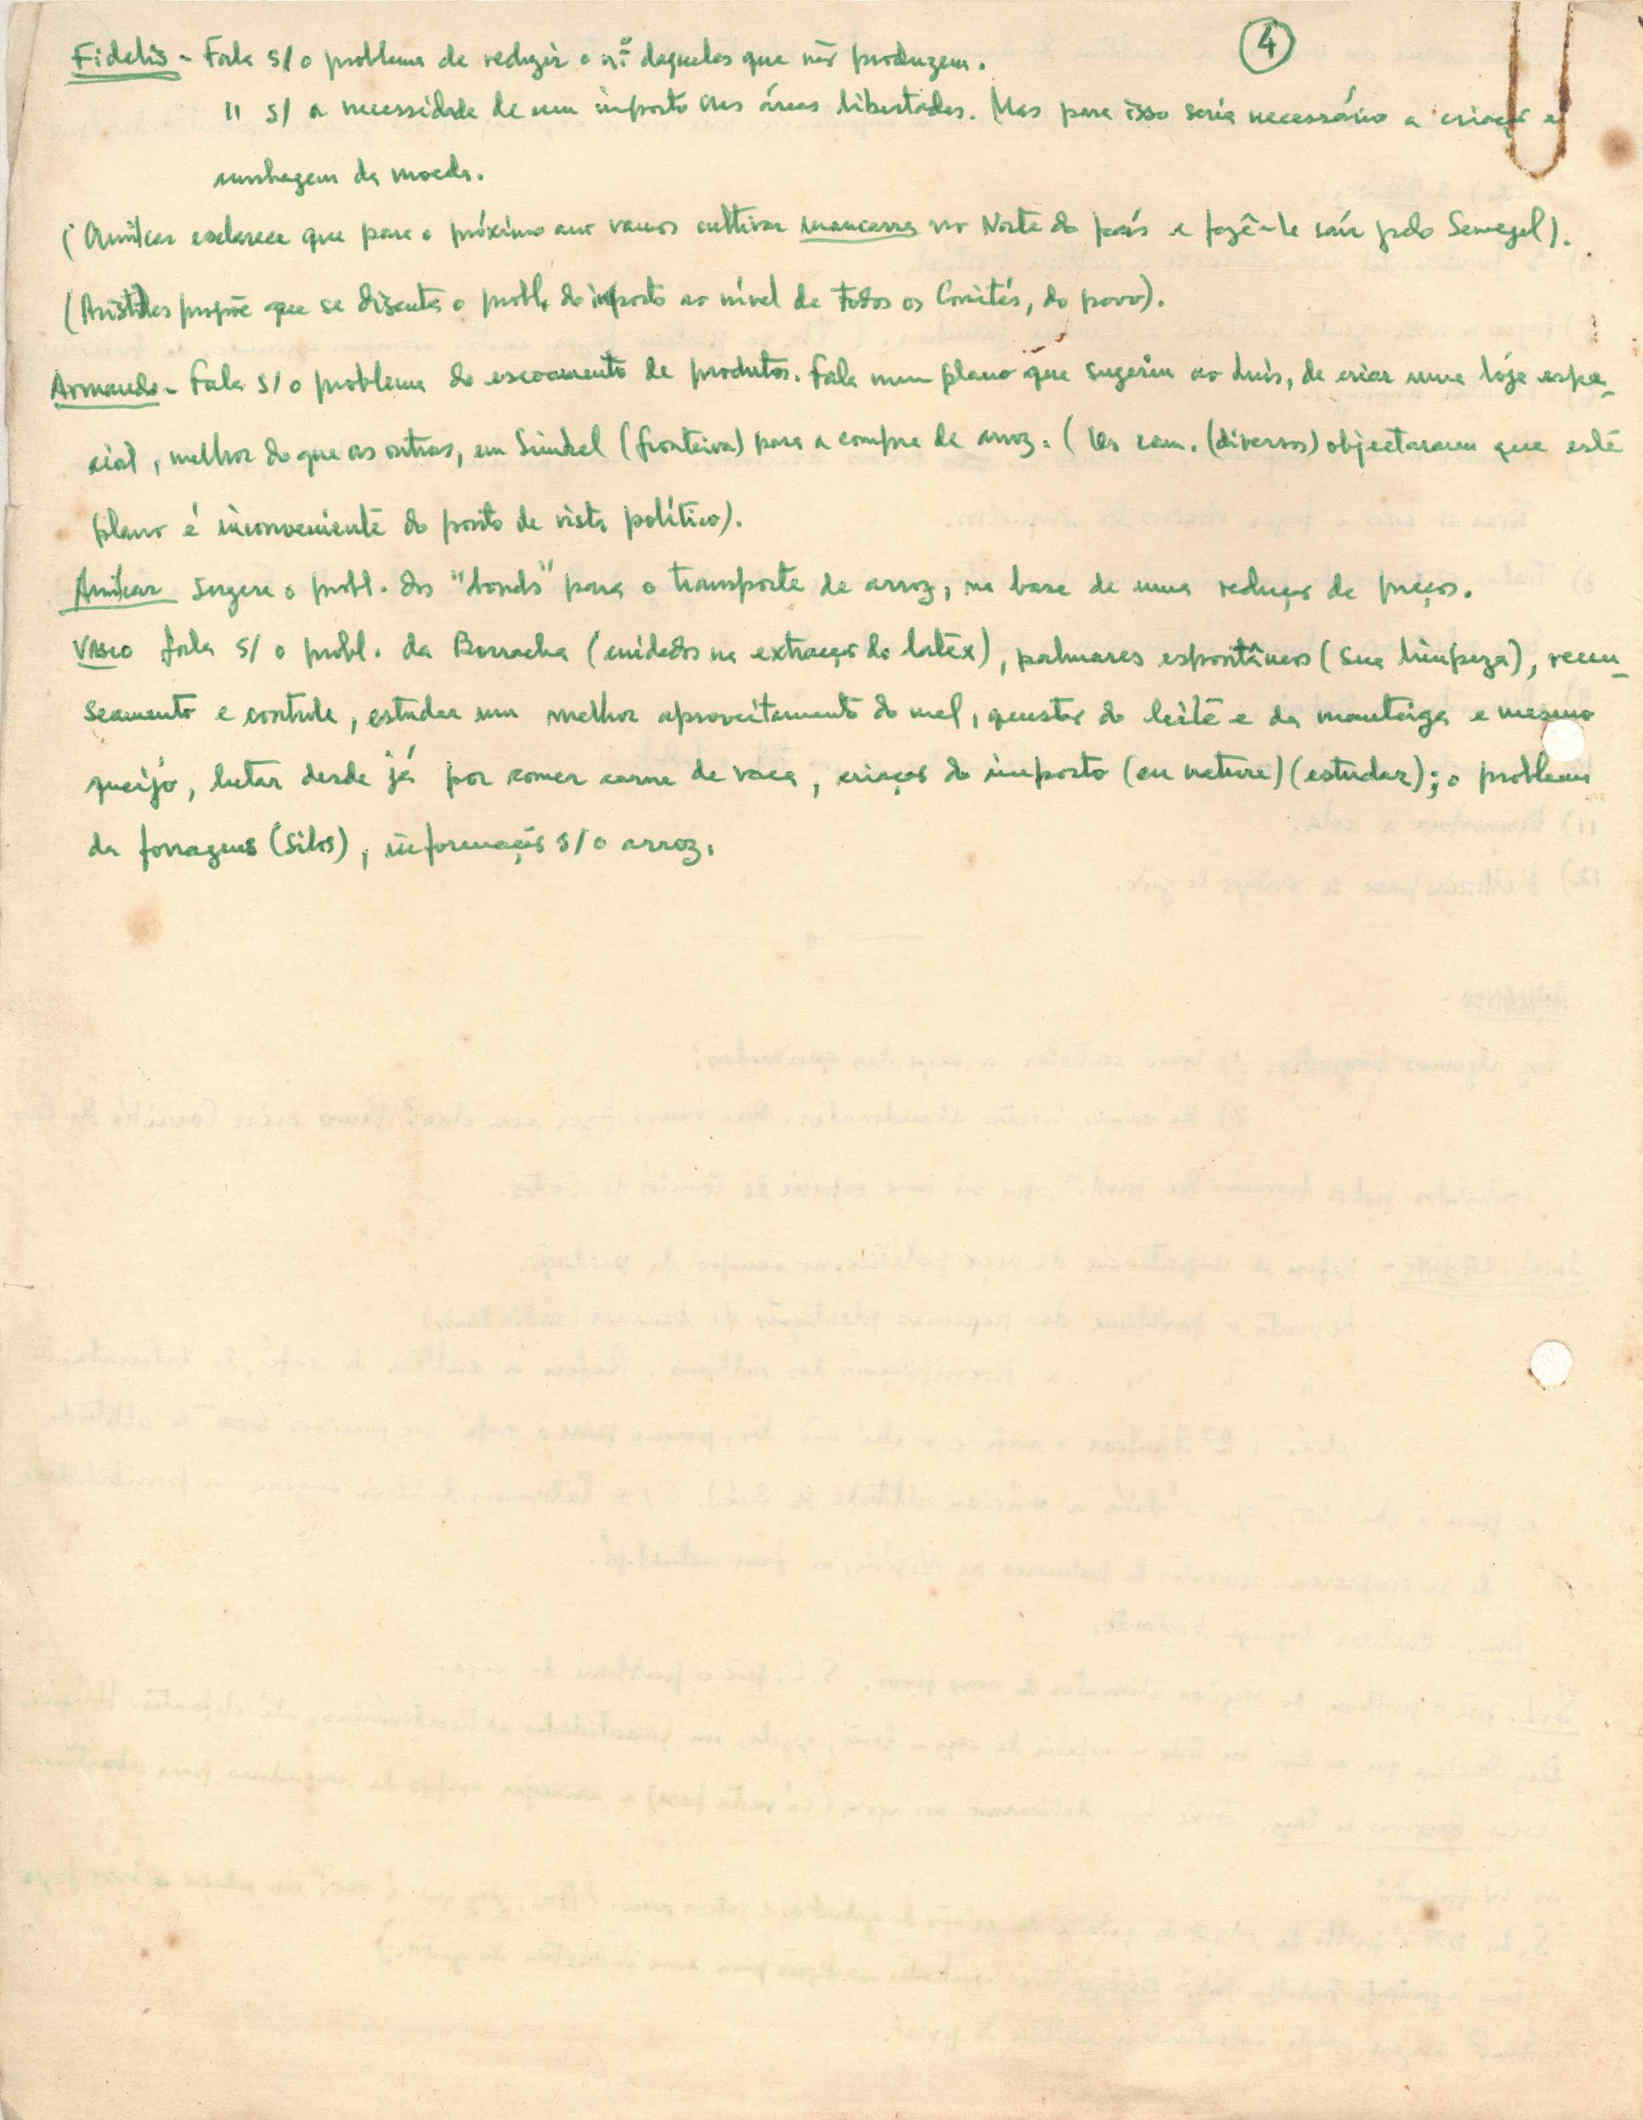 4
Fidelis - Fala s/ o problema de reduzir o nº daqueles que não produzem.
" s/ a necessidade de um imposto nas áreas libertadas. Mas para isso seria necessário a criação e
cunhagem da moeda.
(Amílcar esclarece que para o próximo ano vamos cultivar mancarra no Norte do país e fazê-la sair pelo Senegal).
(Aristides propõe que se discuta o probl. do imposto ao nível de todos os Comités, do povo).
Armando - Fala s/ o problema do escoamento de produtos. Fala num plano que sugeriu ao Luís, de criar uma lója espe-
cial, melhor do que as outras, em (fronteira) para a compra de arroz. (Os cam. (diversos) objectaram que este
plano é inconveniente do ponto de vista político).
Amílcar sugere o probl. dos "bonds" para o transporte de arroz, na base de uma redução de preços.
Vasco fala s/ o probl. da Borracha (cuidados na extracção do latex), palmares espontâneos (sua limpeza), recen-
seamento e controle, estudar um melhor aproveitamento do mel, questão do leite e da manteiga e mesmo
queijo, lutar desde já por comer carne de vaca, criação do imposto (en nature) (estudar); o problema
da forragens (silos), informação s/ o arroz.